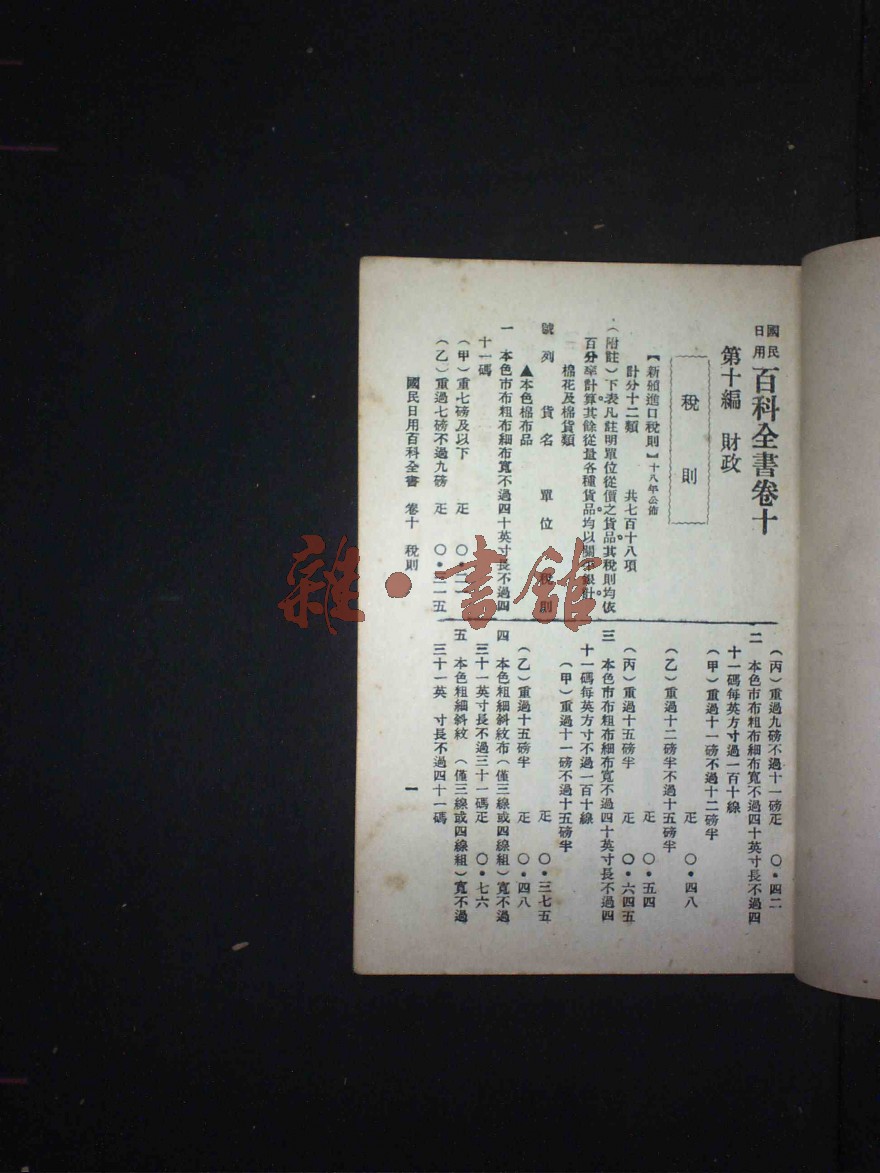 國民日用百科全書卷十
第十編　財政
稅則
【新頒進口稅則】十八年公佈
計分十二類　共七百十八項
（附註）下表凡註明單位從價之貨品。其稅則均依
百分率計算。其餘從量各種貨品。均以關平銀計。
棉花及棉貨類
號列　貨名　單位　稅則
▲本色棉布品
一　本色市布粗布細布寬不過四十英寸長不過四
十一碼
（甲）重七磅及以下　疋　〇・二
（乙）重過七磅不過九磅　疋　〇・三一五
（丙）重過九磅不過十一磅疋　〇・四二
二　本色市布粗布細布寬不過四十英寸長不過四
十一碼每英方寸過一百十線
（甲）重過十一磅不過十二磅半
疋　〇・四八
（乙）重過十二磅半不過十五磅半
疋　〇・五四
（丙）重過十五磅半　疋　〇・六四五
三　本色市布粗布細布寬不過四十英寸長不過四
十一碼每英方寸不過一百十線
（甲）重過十一磅不過十五磅半
疋　〇・三七五
（乙）重過十五磅半　疋　〇・四八
四　本色粗細斜紋布（僅三線或四線組）寬不過
三十一英寸長不過三十一碼疋　〇・七六
五　本色粗細斜紋　（僅三線或四線組）寬不過
三十一英　寸長不過四十一碼
國民日用百科全書　卷十　稅則　一
雜・書館